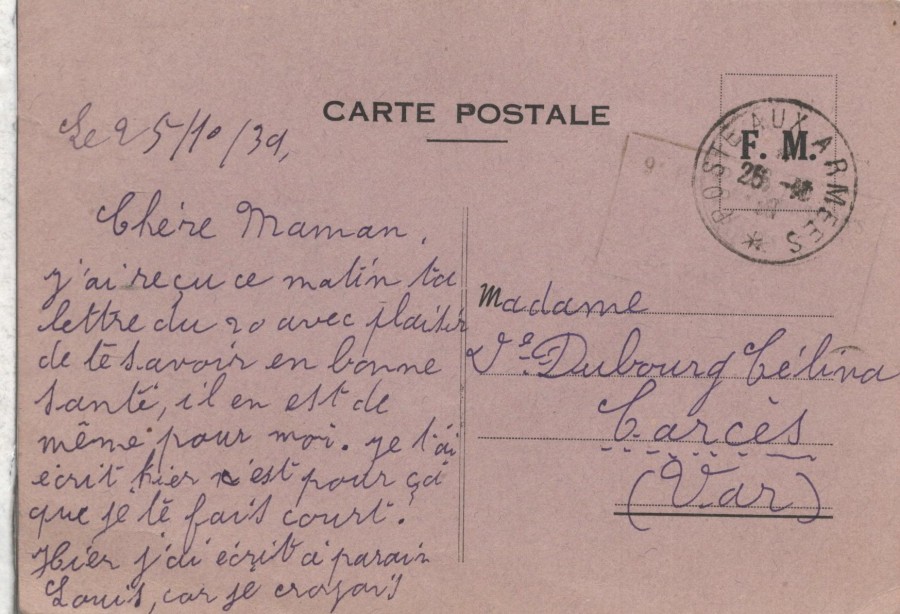 CARTE POSTALE
Le 25/10/39,
Chère Maman,
j'ai reçu ce matin ta
lettre du 20 avec plaisir
de te savoir en bonne
santé, il en est de
même pour moi. je t'ai
écrit hier c'est pour ça
que je te fais court.
Hier j'ai écrit à parain
Louis, car je croyais
F. M.
POSTE AUX ARMEES
25 -10
Madame
Ve Dubourg Célina
Carcès
(Var)